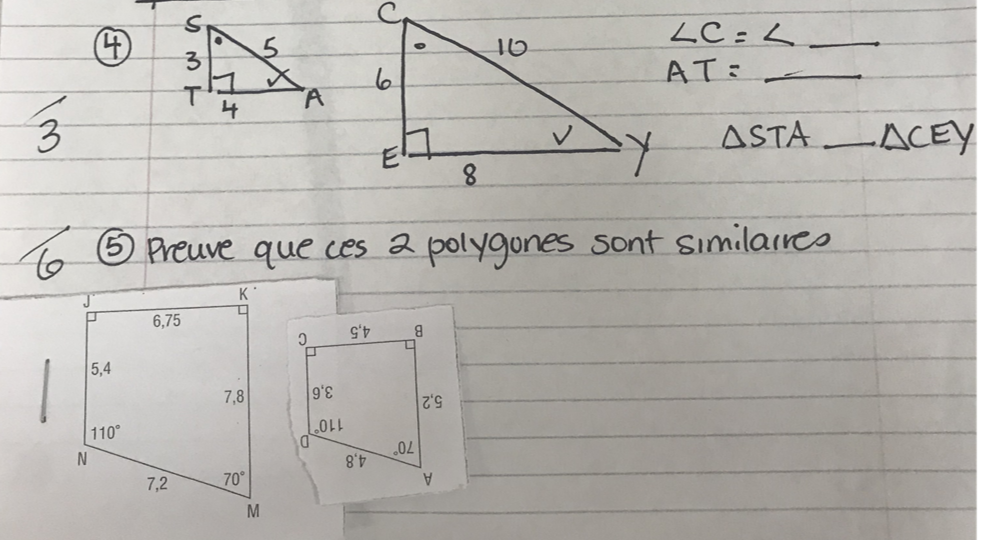 ④
S
3
5
T
4
A
C
6
10
E
8
Y
∠C = ∠ ____
AT = ____
ΔSTA ___ ΔCEY
/3
/6 ⑤ Preuve que ces 2 polygones sont similaires
J
K
6,75
5,4
7,8
110°
70°
N
7,2
M
C
B
4,5
3,6
5,2
110°
70°
D
4,8
A